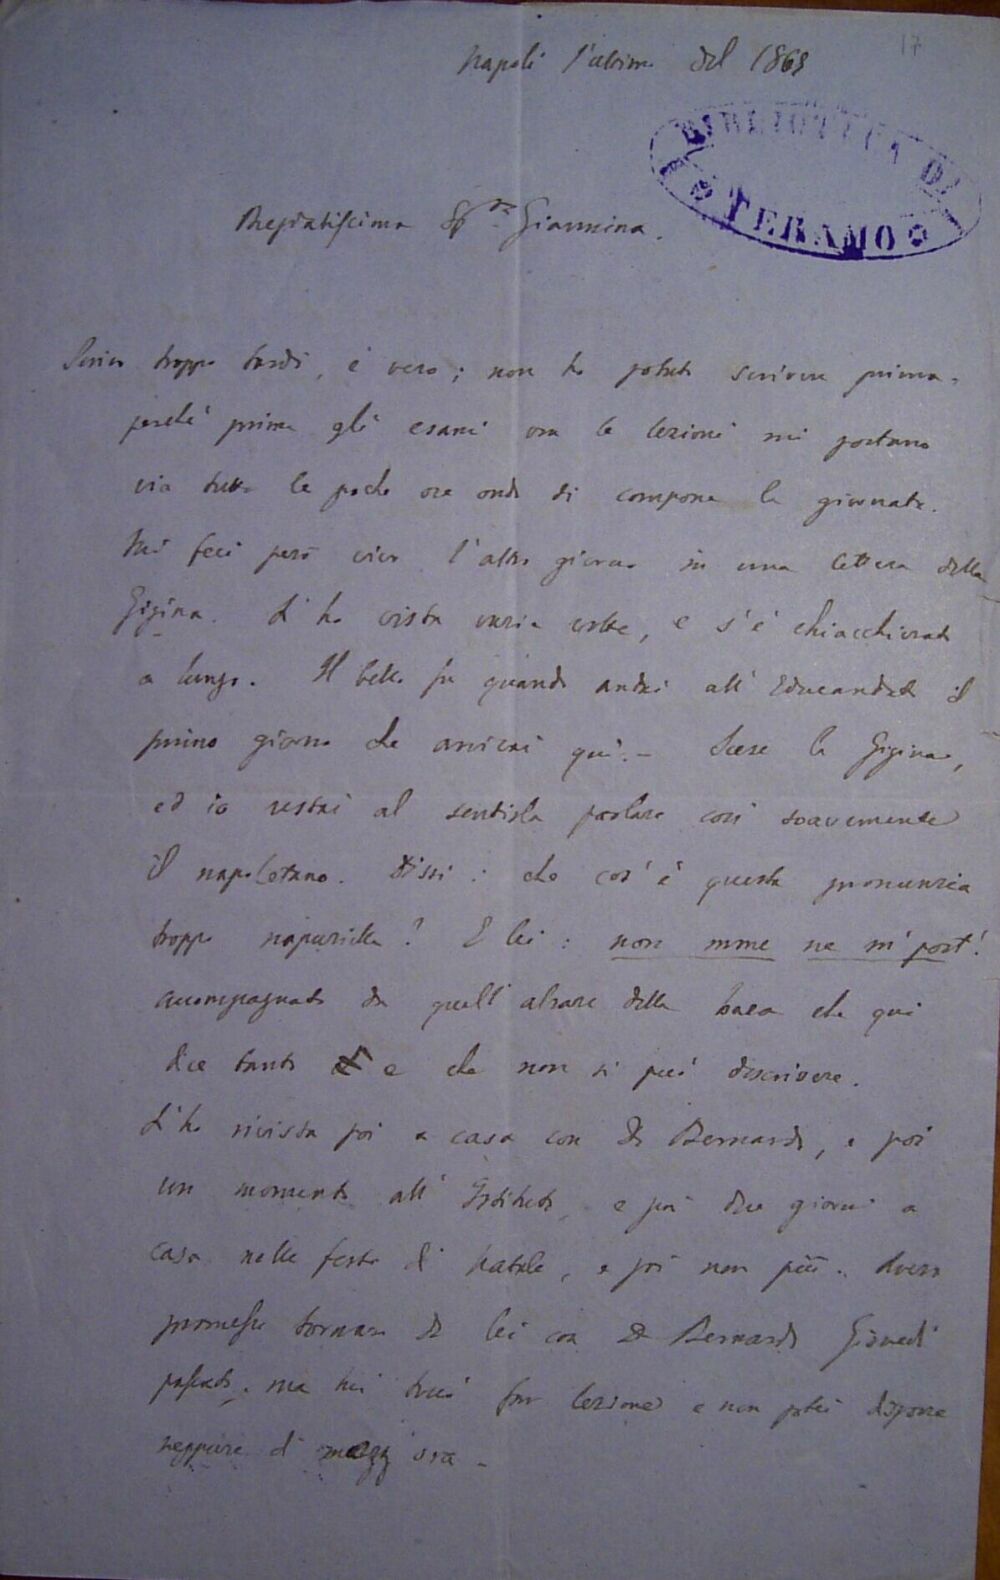 17
Napoli l'ultimo del 1869
BIBLIOTECA DI
TERAMO
Pregiatissima Sigra Giannina.
Scrivo troppo tardi, è vero; non ho potuto scrivere prima,
perché prima gli esami ora le lezioni mi portano
via tutte le poche ore onde si compone la giornata.
Mi feci però vivo l'altro giorno in una lettera della
Gigina. L'ho vista varie volte, e s'è chiacchierato
a lungo. Il bello fu quando andai all'Educandato il
primo giorno che arrivai qui. – Scese la Gigina,
ed io restai al sentirla parlare così soavemente
il napoletano. Dissi: che cos'è questa pronunzia
troppo? E lei: non mme ne m'port'!
accompagnato da quell'alzare della che qui
dice tanto e che non si può descrivere.
L'ho rivista poi a casa con De Bernardi, e poi
un momento all'Istituto, e poi due giorni a
casa nelle feste di Natale, e poi non più. Avevo
promesso tornare da lei con De Bernardi Giovedì
passato, ma mi toccò far lezione e non potei disporre
neppure di mezz'ora –